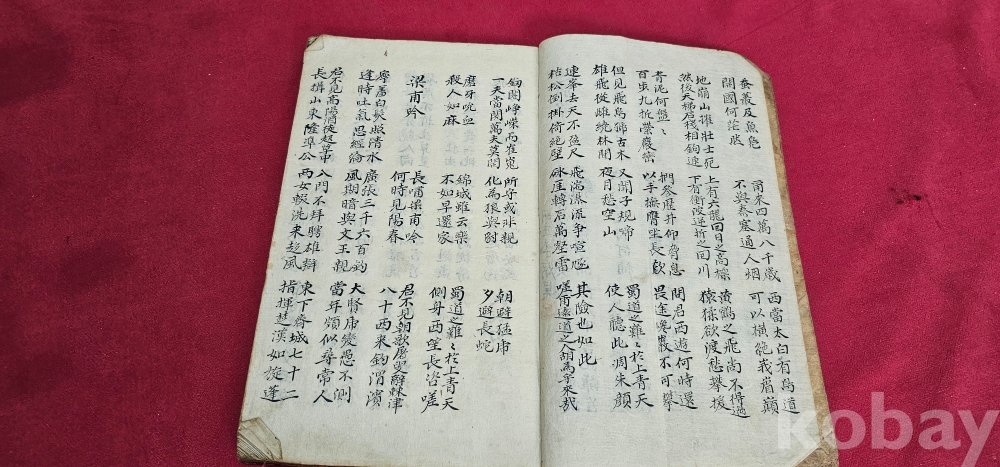 蚕叢及魚鳧
開國何茫然
爾來四萬八千歲
不與秦塞通人烟
西當太白有鳥道
可以橫絶峨眉巔
地崩山摧壯士死
然後天梯石棧相鉤連
上有六龍回日之高標
下有衝波逆折之回川
黃鶴之飛尚不得過
猿猱欲渡愁攀援
青泥何盤〻
百步九折縈巖巒
捫參歷井仰脅息
以手撫膺坐長歎
問君西遊何時還
畏途巉巖不可攀
但見飛鳥號古木
雄飛從雌繞林間
又聞子規啼
夜月愁空山
蜀道之難〻於上青天
使人聽此凋朱顔
連峯去天不盈尺
枯松倒掛倚絶壁
飛湍瀑流爭喧豗
砯崖轉石萬壑雷
其險也如此
嗟爾遠道之人胡爲乎來哉
釼閣崢嶸而崔嵬
一夫當関萬夫莫開
所守或非親
化為狼與豺
朝避猛虎
夕避長蛇
磨牙吮血
殺人如麻
錦城雖云樂
不如早還家
蜀道之難〻於上青天
側身西望長咨嗟
梁甫吟
長嘯梁甫吟
何時見陽春
君不見朝歌屠叟辭棘津
八十西來釣渭濱
寧羞白髮照清水
逢時吐氣思經綸
廣張三千六百釣
風期暗與文王親
大賢虎變愚不測
當年頗似尋常人
君不見高陽酒徒起草中
長揖山東隆準公
入門不拜騁雄辯
兩女輟洗來趍風
東下齊城七十二
指揮楚漢如旋蓬
kobay